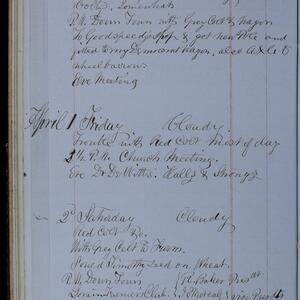 P.M. Down Town with Grey Colt & Wagon
To Goodspeeds Shop & got new Pole and
to my Democrat Wagon, also Axle to
wheelbarrow
Eve Meeting
April 1 Friday Cloudy
Trouble with Red Colt most of day
2½ P.M. Church Meeting.
Eve Dr De Witts. Halls & Strongs
2d Saturday Cloudy
Red Colt &c.
With Grey Colt to Farm.
Sowed Timothy Seed on Wheat.
P.M. Down Town
Club